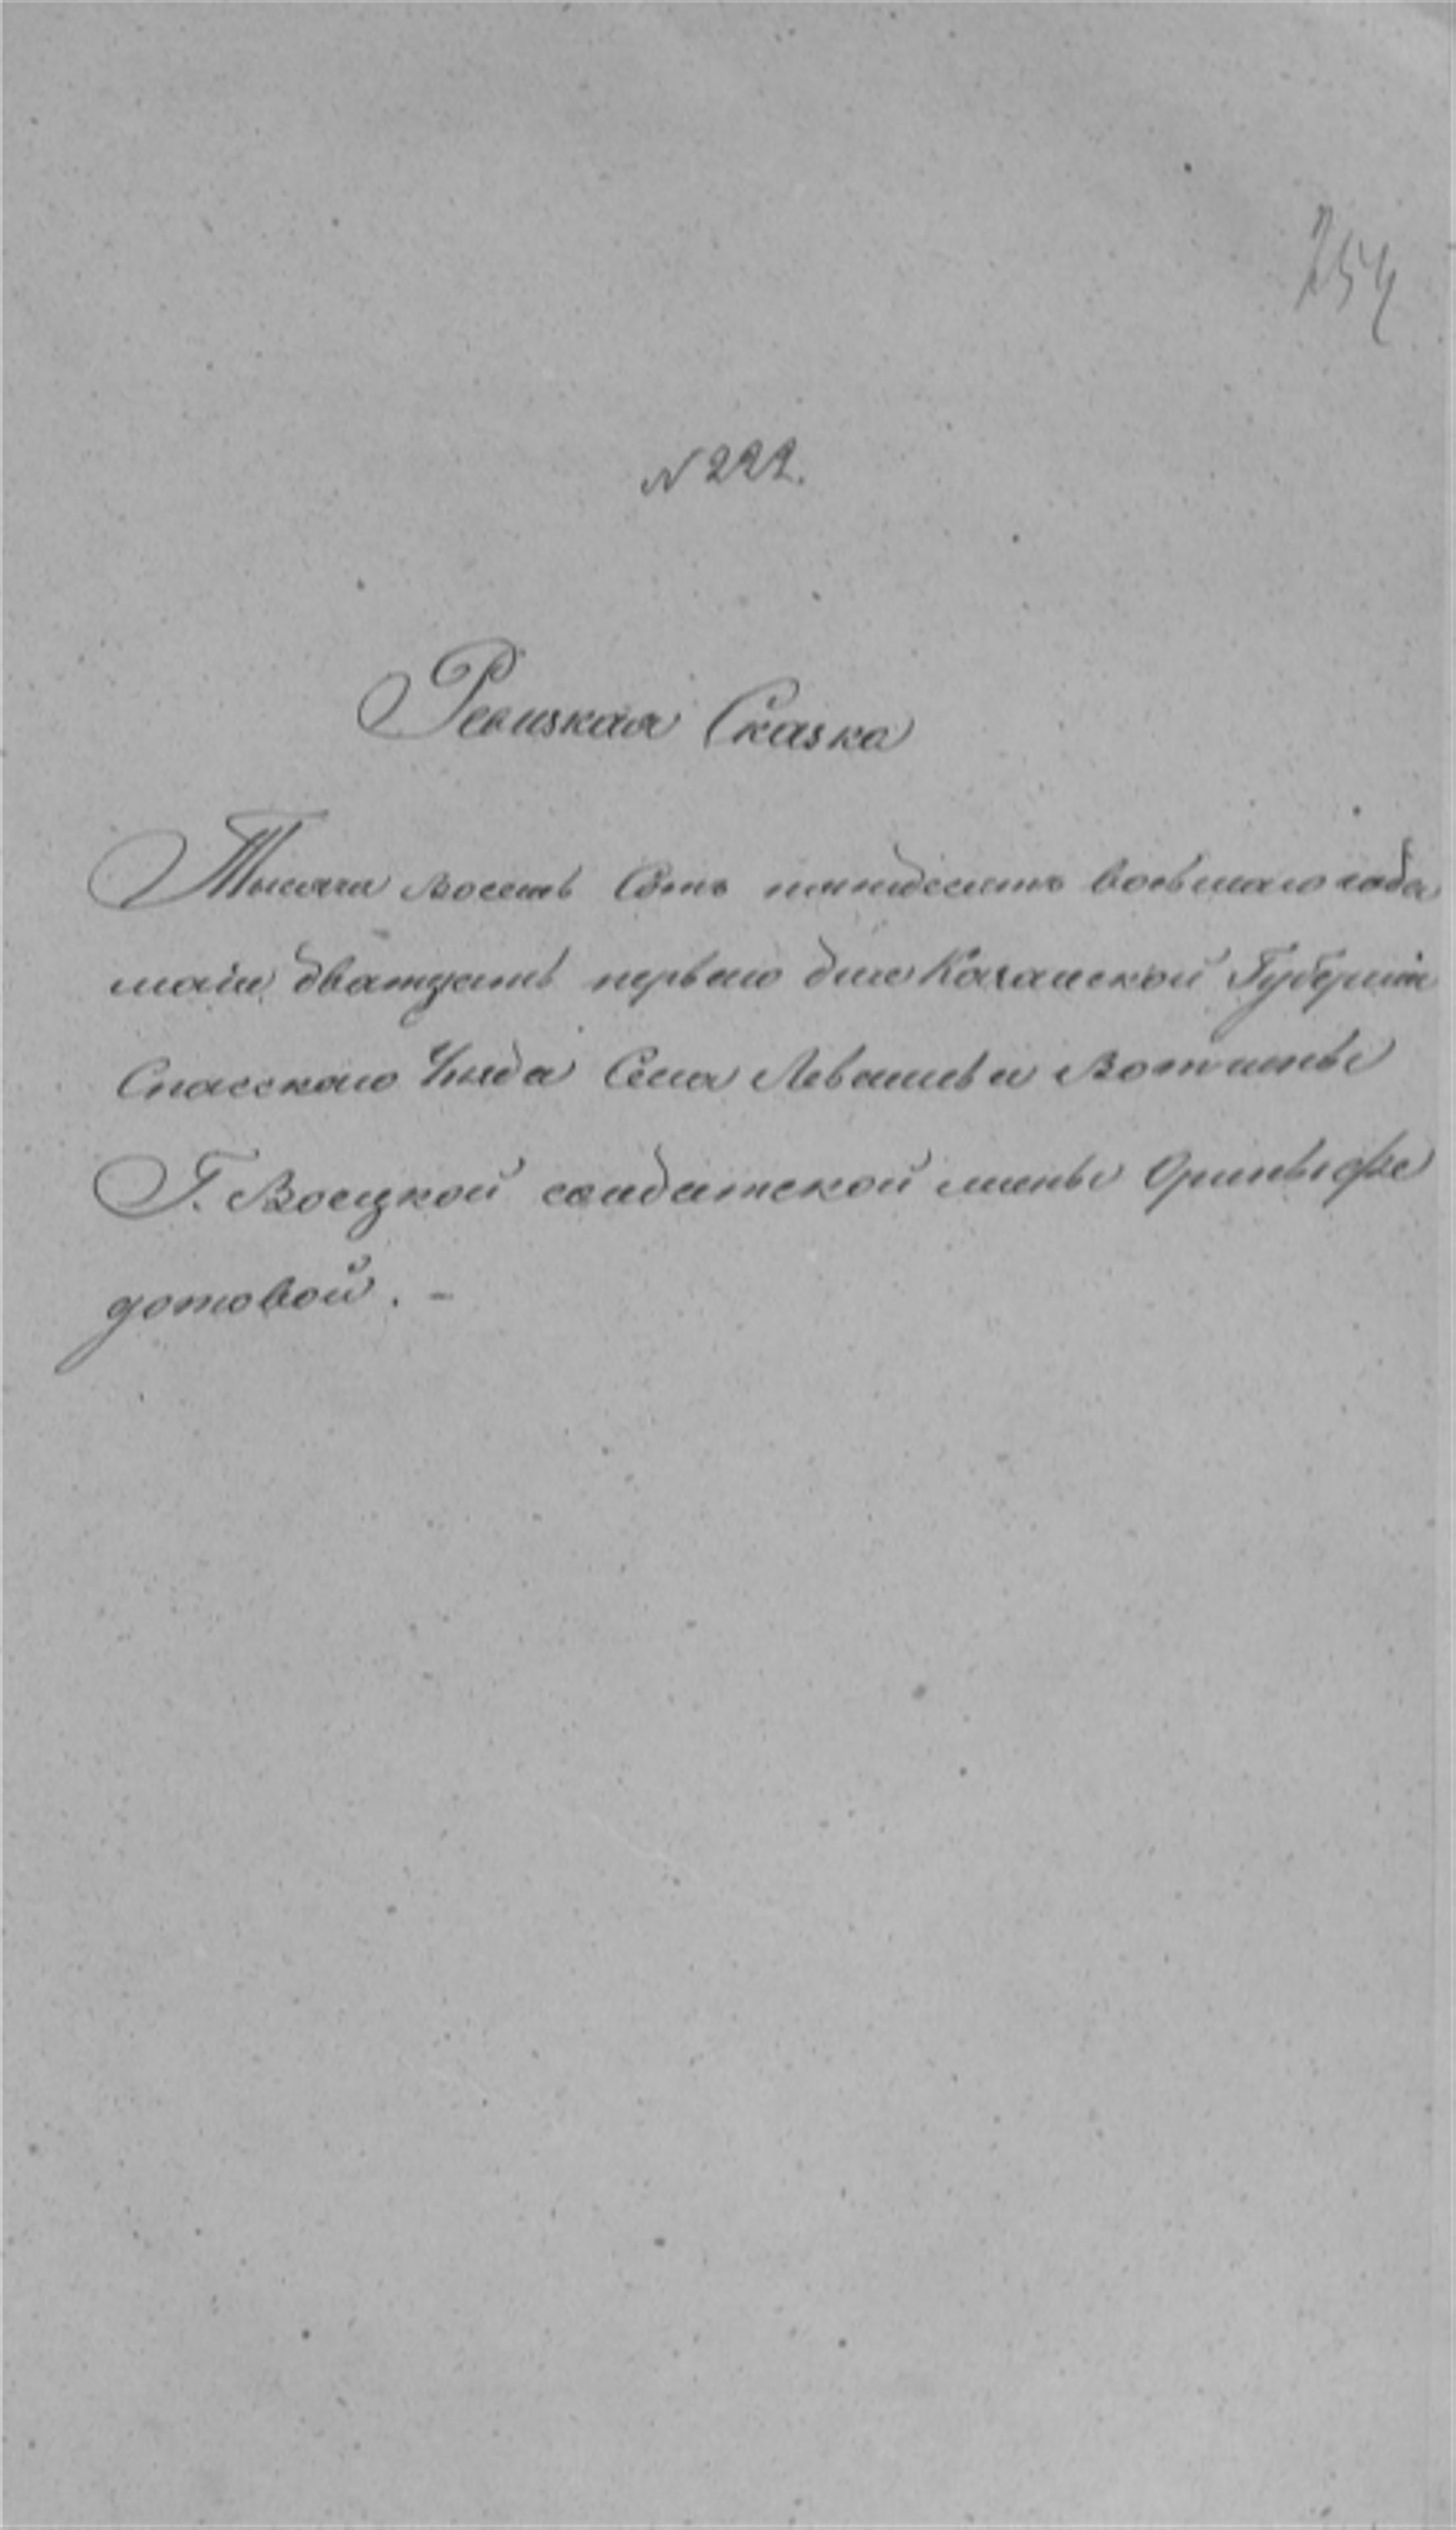 254
N 222.
Ревизкая Сказка
Тысяча восемь Сотъ пятьдесятъ восьмаго года
маiя дватцать перваго дня Казанской Губернiи
Спасскаго Уезда Села Левашева Вотчины
Г. Воецкой салдатской жены Орины Фе
дотовой. -